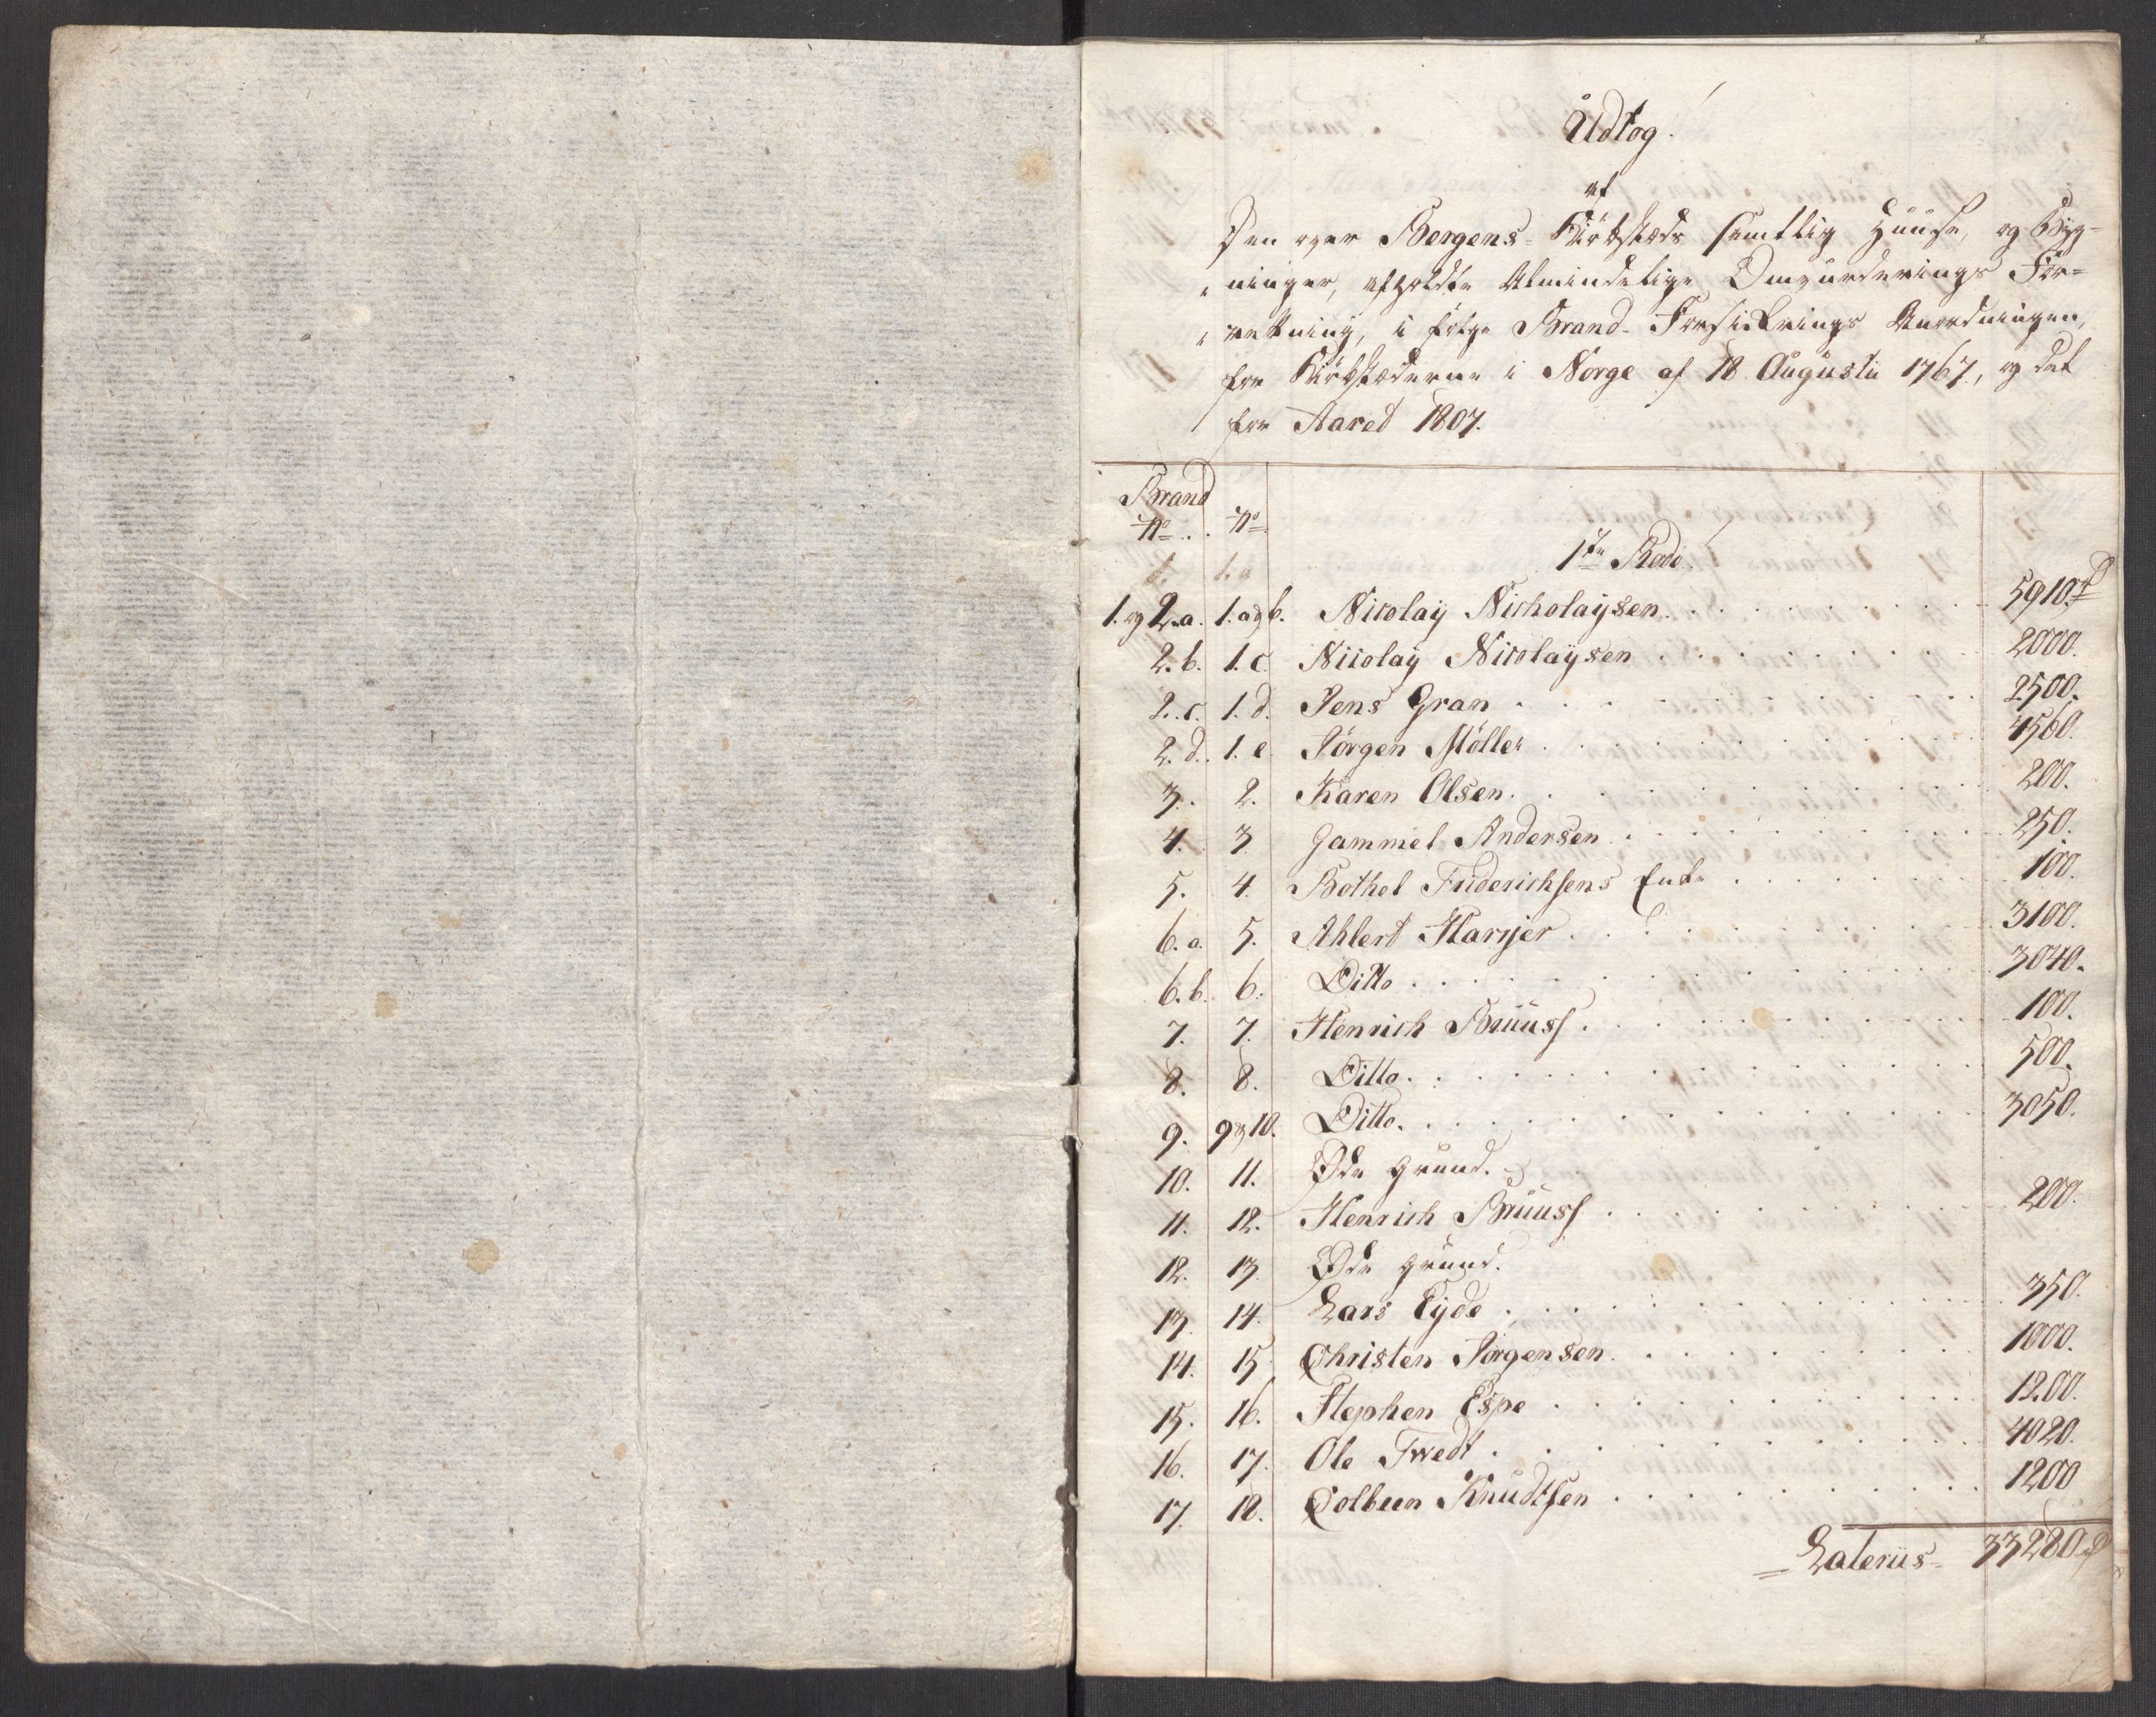 Udtog
af
Den over Bergens Kiöbstæds samtlig Huuse, og Byg-
ninger, afholdte Almindelige Omvurderings For-
retning, i fölge Brand-Forsikrings Anordningen,
for Kiöbstæderne i Norge af 18 Augustii 1767, og det
for Aaret 1807.
Brand
No. No.
1te Rode.
1. og 2.a. 1.a og b. Nicolaÿ Nicholaÿsen. 5910
2.b. 1.c. Nicolaÿ Nicolaÿsen 2000.
2.c. 1.d. Jens Gran 2500.
2.d. 1.e. Jörgen Möller 4560.
3. 2. Karen Olsen. 200.
4. 3. Gammel Andersen 250.
5. 4. Bothel Friderichsens Enke 100.
6.a. 5. Ahlert Harijer 3100.
6.b. 6. Ditto 3040.
7. 7. Henrich Bruuss 100.
8. 8. Ditto. 500.
9. 9 og 10. Ditto. 3050.
10. 11. Øde Grund.
11. 12. Henrich Bruuss 200.
12. 13. Øde Grund.
13. 14. Lars Eÿde 350.
14. 15. Christen Jörgensen 1000.
15. 16. Stephen Espe 1200.
16. 17. Ole Twedt 4020.
17. 18. Colbeen Knudtsen 1200
Laterus 33280